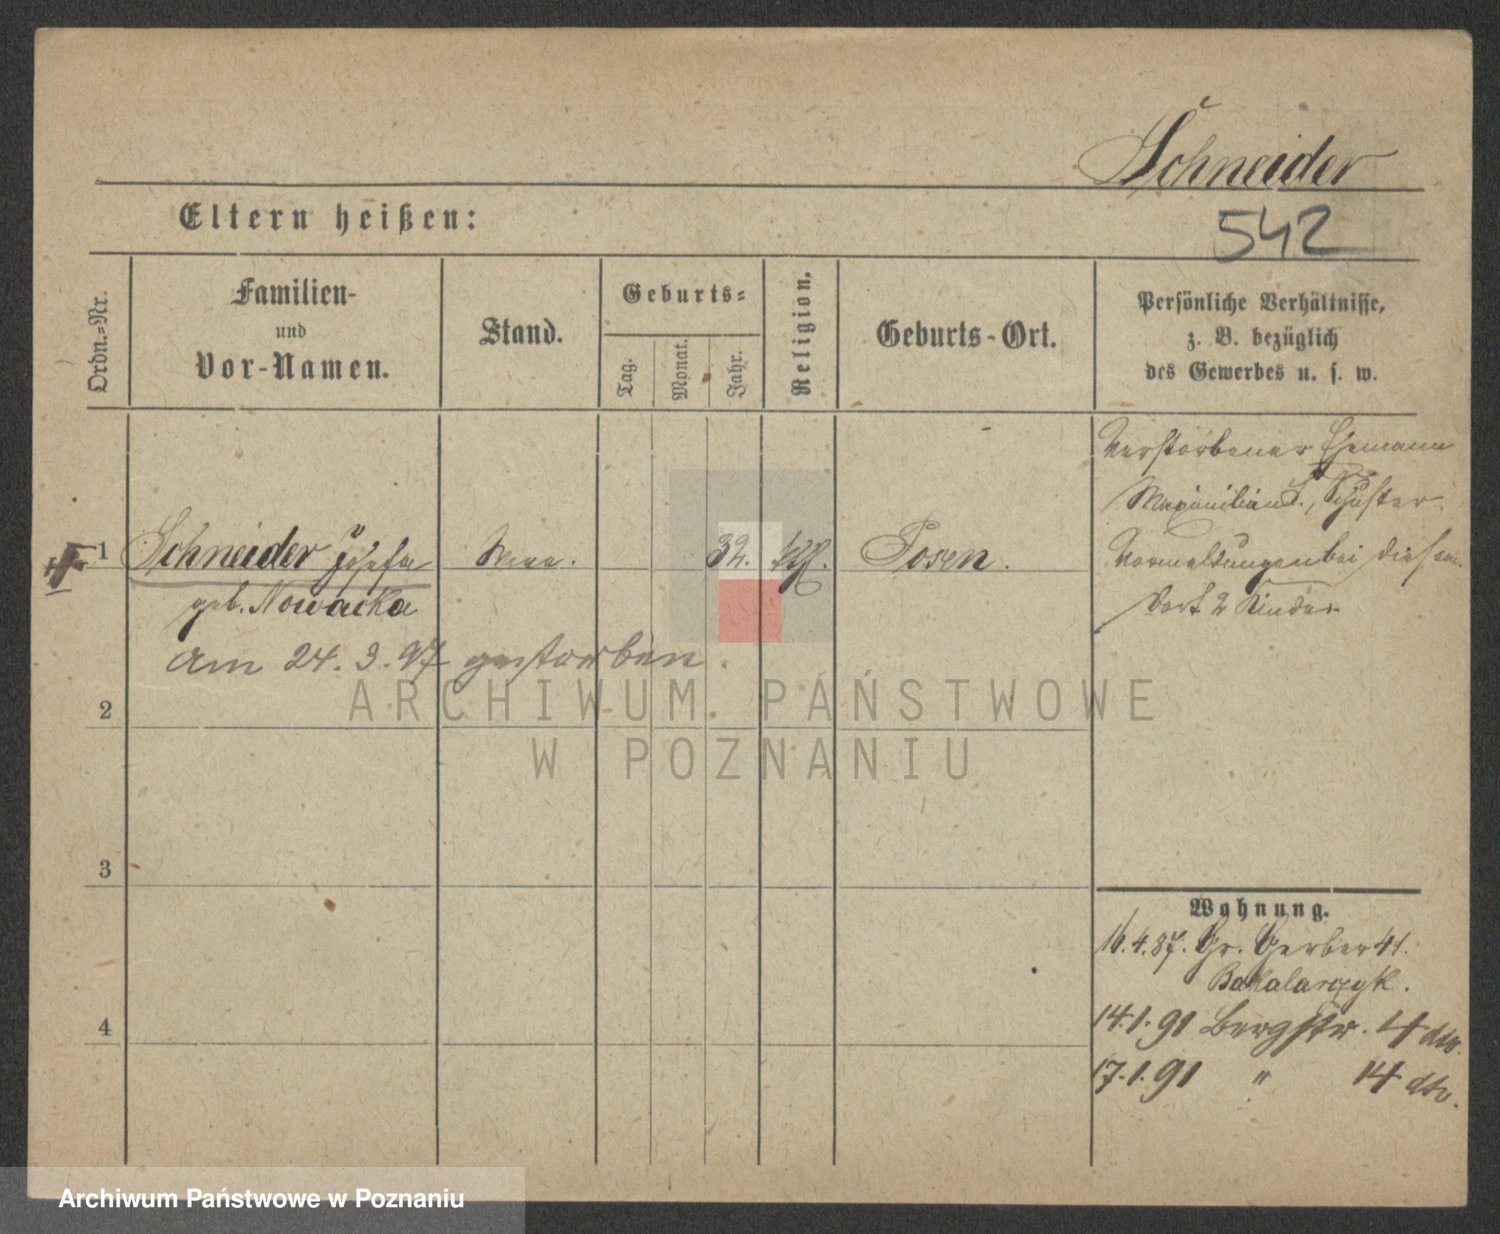 Schneider
Eltern heißen:
542
Ordn.=Nr.
Familien-
und
Vor-Namen.
Stand.
Geburts=
Tag.
Monat.
Jahr.
Religion.
Geburts-Ort.
Persönliche Verhältnisse,
z. B. bezüglich
des Gewerbes u. s. w.
Verstorbener Ehemann
Maximilian S., Schuster.
Vermeldungen bei diesem.
dort 2 Kinder
1
Schneider Josefa
32. Kth.
Posen.
geb. Nowacka
am 24. 3. 97 gestorben.
ARCHIWUM PAŃSTWOWE
W POZNANIU
2
3
4
Wohnung.
16.4.87. Gr. Gerber 41.
Bakalarczyk.
14.1.91 Bergstr. 4 dto.
17.1.91 " 14 dto.
Archiwum Państwowe w Poznaniu